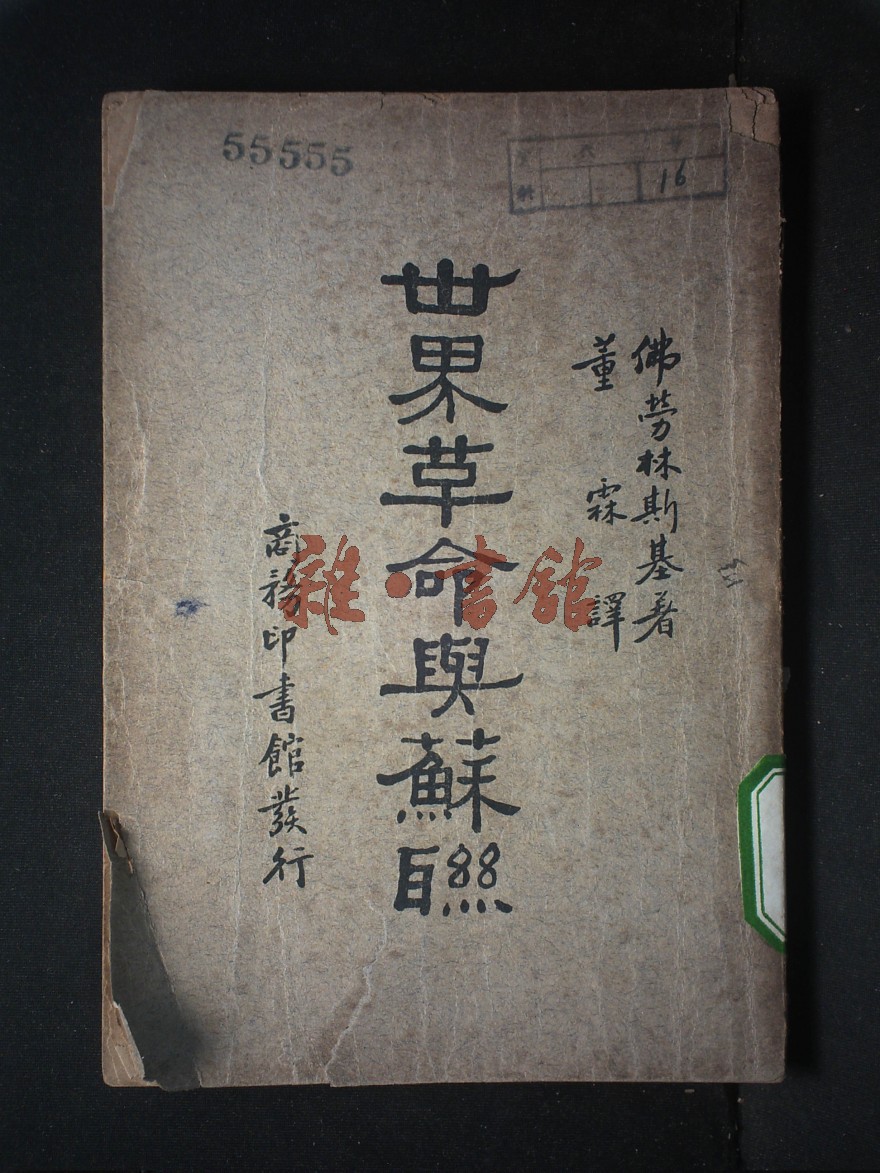 55555
16
佛勞林斯基著
董霖譯
世界革命與蘇聯
商務印書館發行
雜·書館